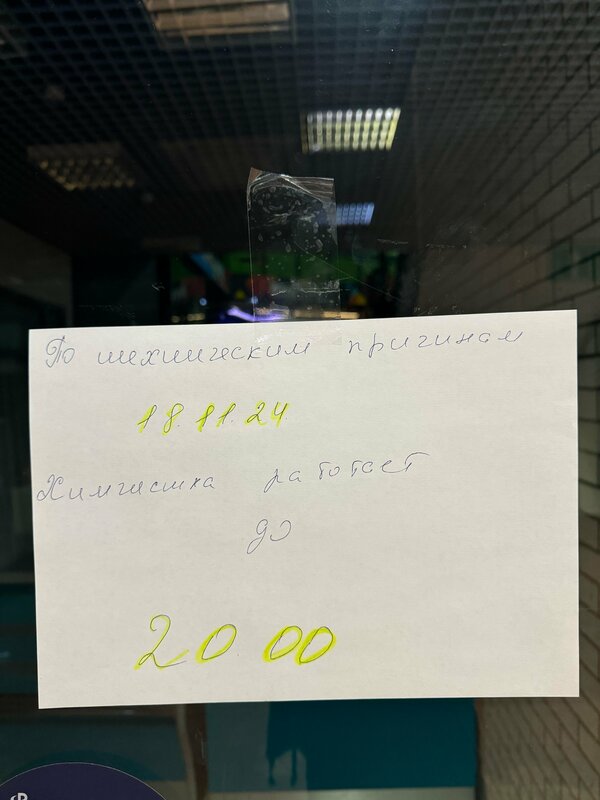 По техническим причинам
18.11.24
Химчистка работает
до
20.00